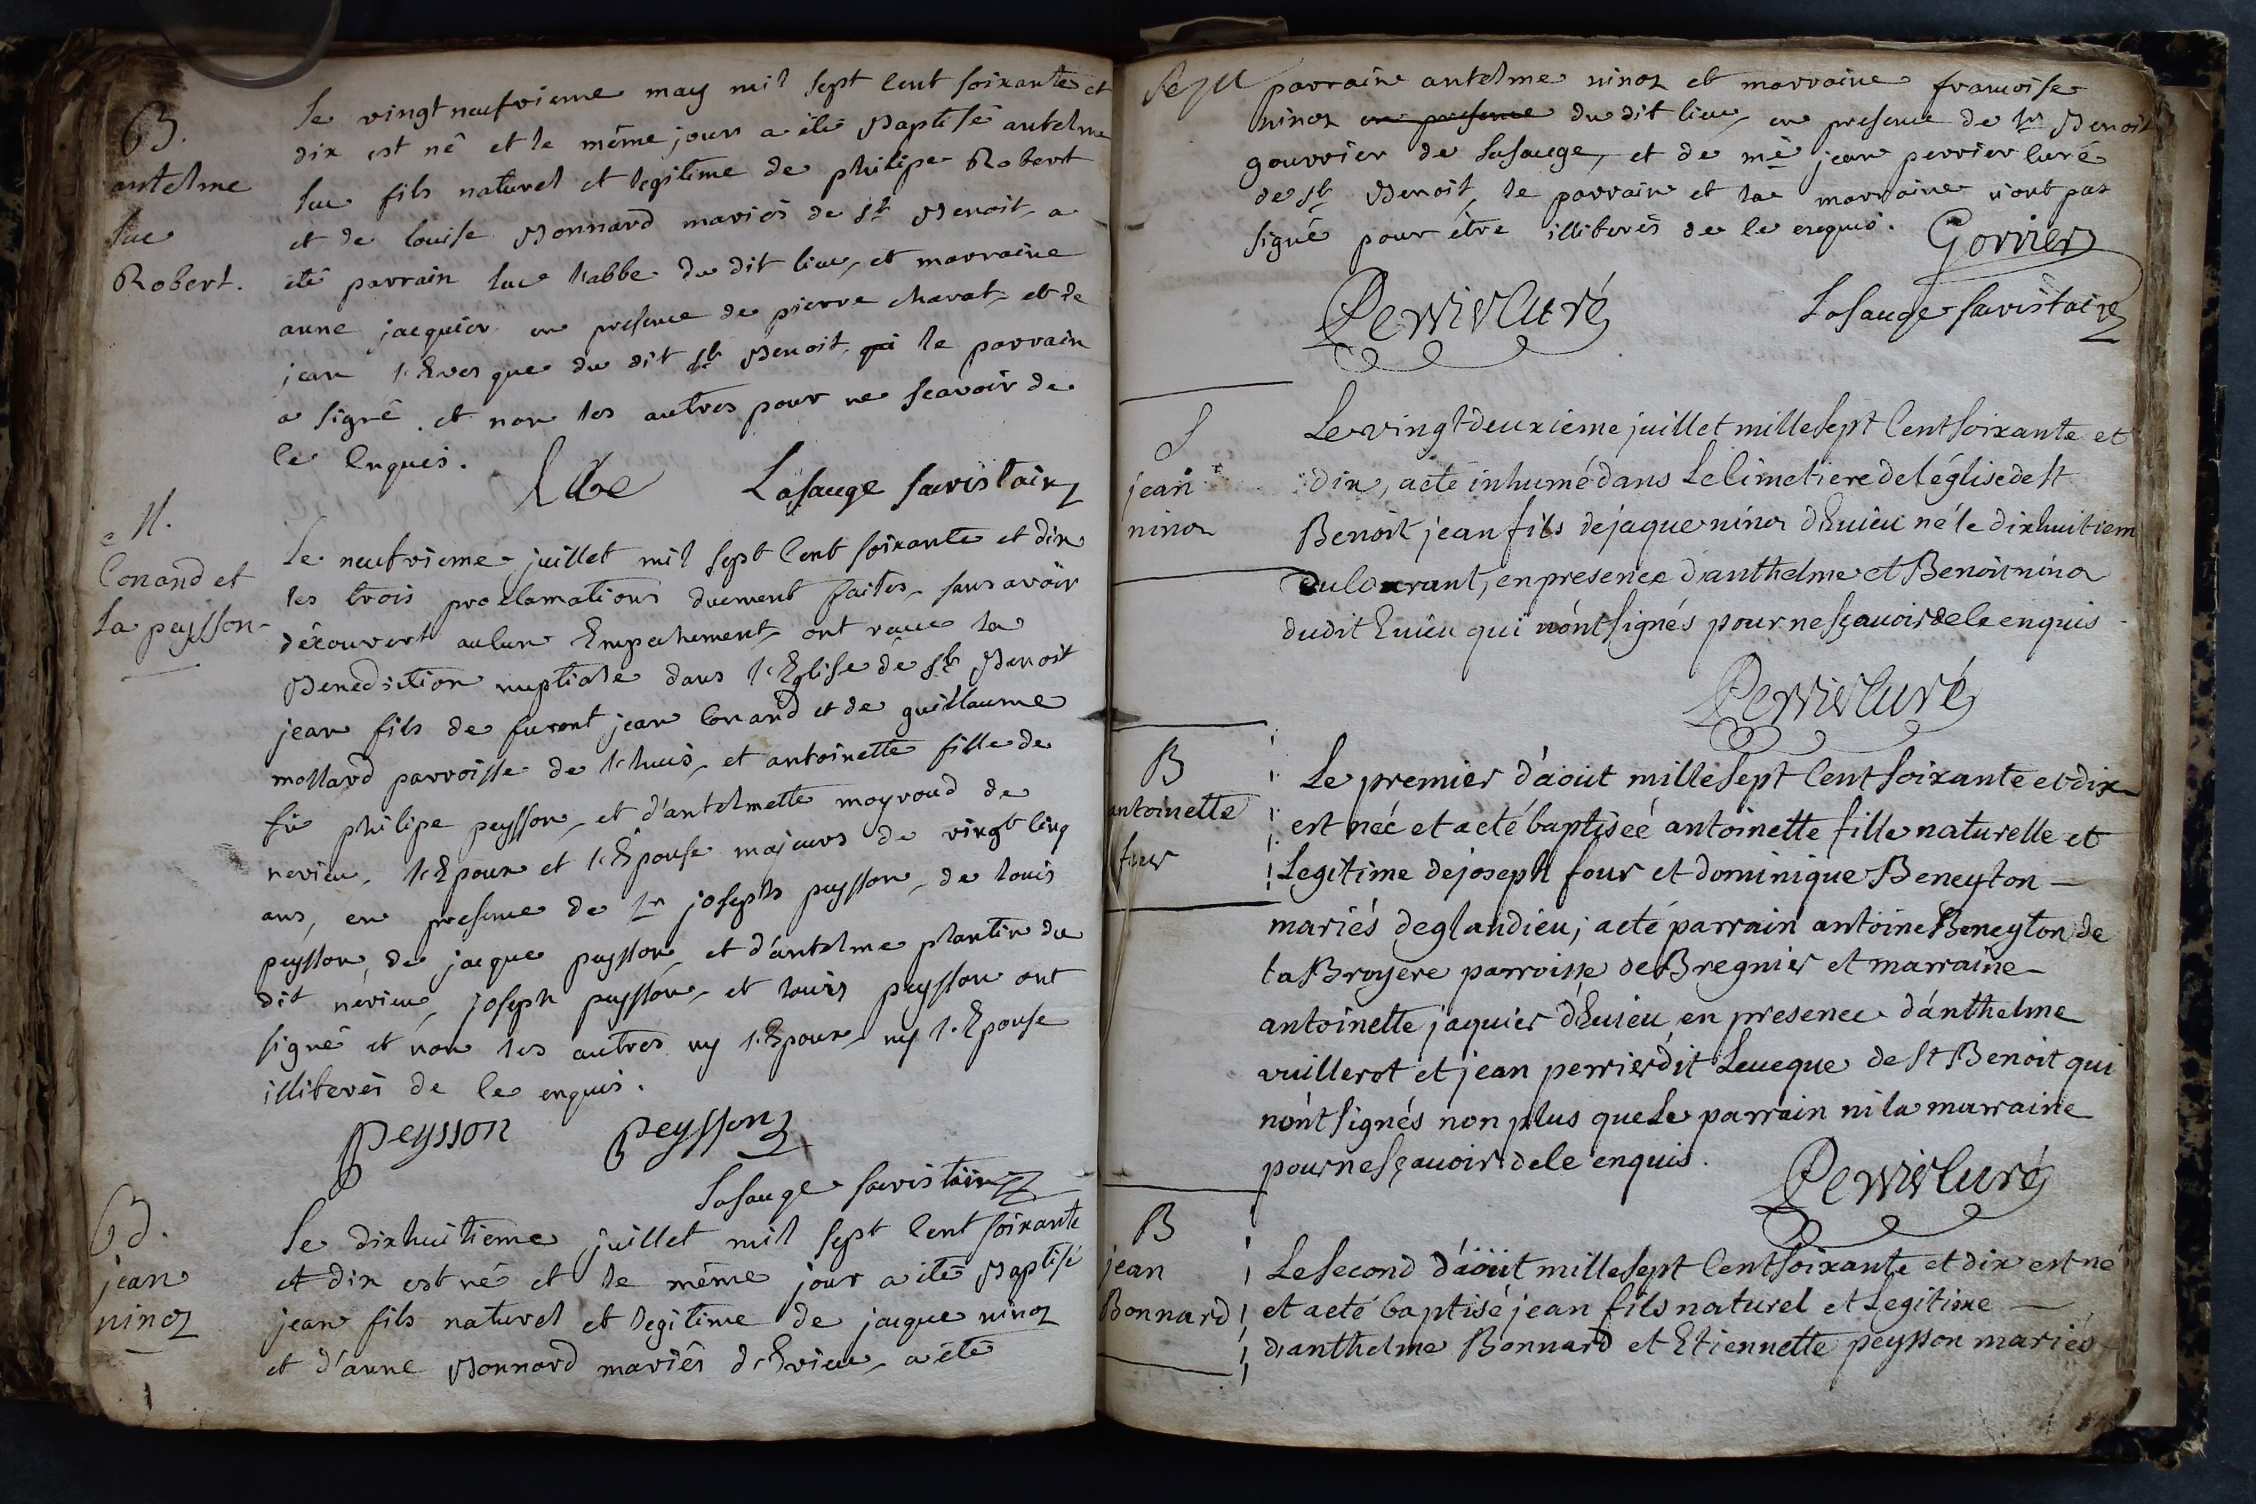 B.
antelme
luc
Robert.
Le vingt neufvieme may mil sept Cent soixante et
dix est né et le même jours a été Baptisé antelme
luc fils naturel et legitime de philipe Robert
et de louise Bonnard mariés de st Benoit, a
été parrain luc labbe du dit lieu, et marraine
anne jacquier en presence de pierre charat, et de
jean l'Evesque du dit st Benoit, qui le parrain
a signé, et non les autres pour ne scavoir de
ce Enquis.
Labbe Lasauge sacristain
M.
Conand et
la peysson
Le neufvieme juillet mil sept Cent soixante et dix
les trois proclamations duement faites, sans avoir
découvert aucun Empechement, ont reçue la
Benediction nuptiale dans l'Eglise de st Benoit
jean fils de furent jean Conand et de guillaume
mollard parroisse de lhuis, et antoinette fille de
fû philipe peysson, et d'antelmette moyroud de
nevieu, l'Epoux et l'Epouse majeurs de vingt Cinq
ans, en presence de sr joseph peysson, de louis
peysson, de jacque peysson, et d'antelme plantin du
dit nevieu, joseph peysson, et louis peysson ont
signé et non les autres ny l'Epoux, ny l'Epouse
illiterés de ce enquis.
peysson peysson
Lasauge sacristain
B.
jean
ninoz
Le dixhuitieme juillet mil sept Cent soixante
et dix est né et le même jour a été Baptisé
jean fils naturel et legitime de jacque ninoz
et d'anne Bonnard mariés d'Evieu, a été
sept parrain antelme ninoz et marraine francoise
ninoz en presence du dit lieu, en presence de sr Benoit
gourrier de Lasauge, et de mè jean perrier Curé
de st Benoit, le parrain et la marraine n'ont pas
signé pour être illiterés de ce enquis. Gorrier
Perrier Curé Lasauge sacristain
S
jean
ninoz
Le vingt deuxieme juillet mille sept Cent soixante et
dix, a eté inhumé dans Le Cimetiere de l'église de st
Benoit jean fils de jaque ninoz d'Evieu né le dixhuitiem
du Courant, en presence d'anthelme et Benoit ninoz
dudit Evieu qui n'ont signés pour ne sçavoir de ce enquis
Perrier Curé
B
antoinette
four
Le premier d'aout mille sept Cent soixante et dix
est née et a eté baptiseé antoinette fille naturelle et
Legitime de joseph four et dominique Beneyton
mariés de glandieu; a eté parrain antoine Beneyton de
la Broyere parroisse de Bregnier et marraine
antoinette jaquier d'Evieu, en presence d'anthelme
vuillerot et jean perrier dit Leveque de st Benoit qui
n'ont signés non plus que Le parrain ni la marraine
pour ne sçavoir de ce enquis.
Perrier Curé
B
jean
Bonnard
Le second d'aout mille sept Cent soixante et dix est né
et a eté baptisé jean fils naturel et Legitime
d'anthelme Bonnard et Etiennette peysson mariés